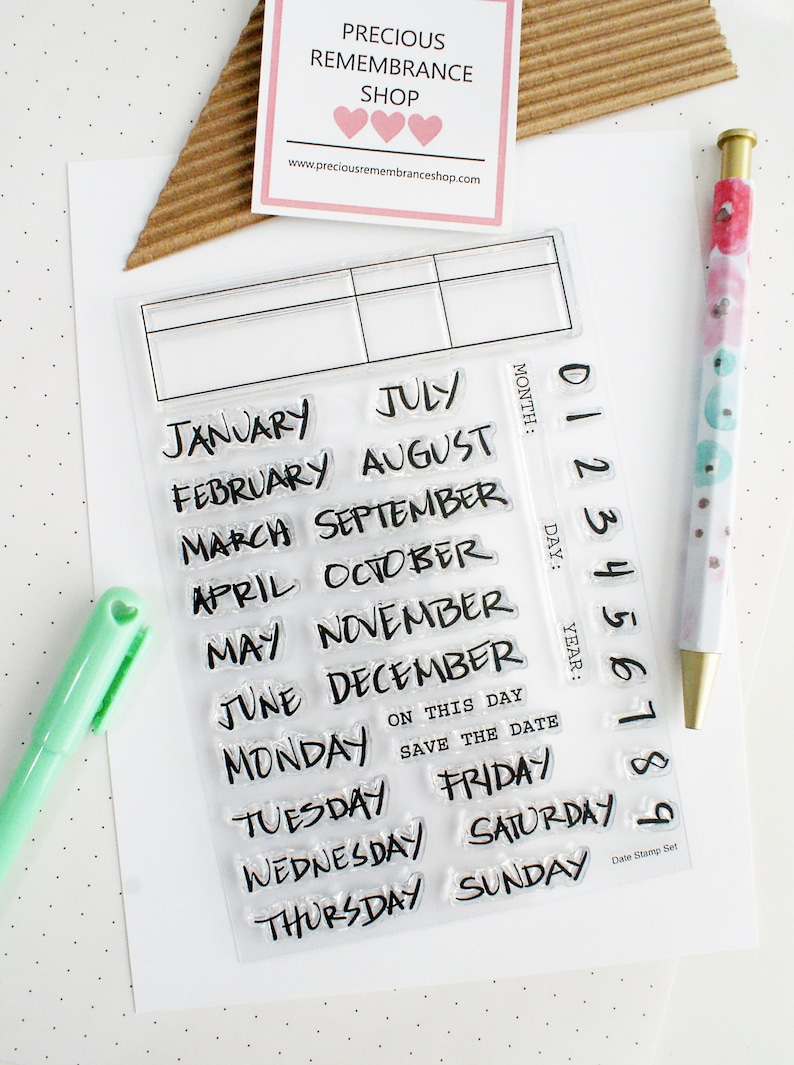 PRECIOUS
REMEMBRANCE
SHOP
www.preciousremembranceshop.com
JANUARY
FEBRUARY
MARCH
APRIL
MAY
JUNE
JULY
AUGUST
SEPTEMBER
OCTOBER
NOVEMBER
DECEMBER
ON THIS DAY
SAVE THE DATE
MONDAY
TUESDAY
WEDNESDAY
THURSDAY
FRIDAY
SATURDAY
SUNDAY
MONTH:
DAY:
YEAR:
0
1
2
3
4
5
6
7
8
9
Date Stamp Set